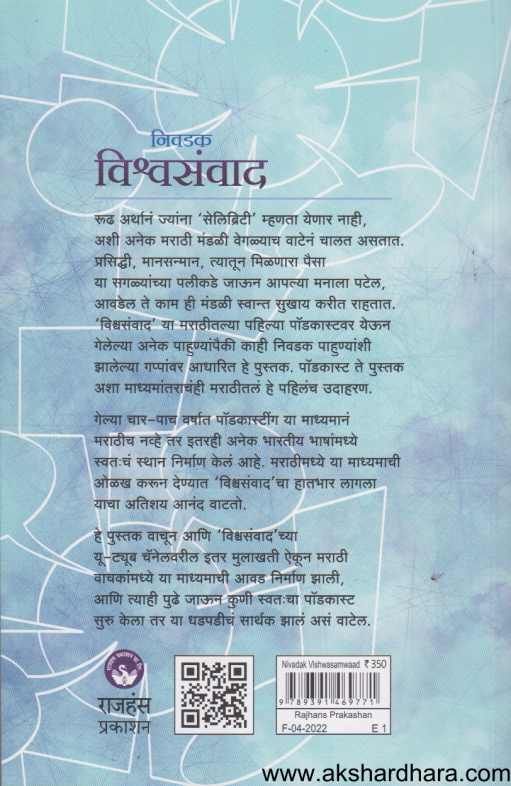 निवडक
विश्वसंवाद
रूढ अर्थानं ज्यांना ‘सेलिब्रिटी’ म्हणता येणार नाही,
अशी अनेक मराठी मंडळी वेगळ्याच वाटेनं चालत असतात.
प्रसिद्धी, मानसन्मान, त्यातून मिळणारा पैसा
या सगळ्यांच्या पलीकडे जाऊन आपल्या मनाला पटेल,
आवडेल ते काम ही मंडळी स्वान्त सुखाय करीत राहतात.
‘विश्वसंवाद’ या मराठीतल्या पहिल्या पॉडकास्टवर येऊन
गेलेल्या अनेक पाहुण्यांपैकी काही निवडक पाहुण्यांशी
झालेल्या गप्पांवर आधारित हे पुस्तक. पॉडकास्ट ते पुस्तक
अशा माध्यमांतराचंही मराठीतलं हे पहिलंच उदाहरण.
गेल्या चार-पाच वर्षात पॉडकास्टींग या माध्यमानं
मराठीच नव्हे तर इतरही अनेक भारतीय भाषांमध्ये
स्वतःचं स्थान निर्माण केलं आहे. मराठीमध्ये या माध्यमाची
ओळख करून देण्यात ‘विश्वसंवाद’चा हातभार लागला
याचा अतिशय आनंद वाटतो.
हे पुस्तक वाचून आणि ‘विश्वसंवाद’च्या
यू-ट्यूब चॅनेलवरील इतर मुलाखती ऐकून मराठी
वाचकांमध्ये या माध्यमाची आवड निर्माण झाली,
आणि त्याही पुढे जाऊन कुणी स्वतःचा पॉडकास्ट
सुरु केला तर या धडपडीचं सार्थक झालं असं वाटेल.
राजहंस
प्रकाशन
Nivadak Vishwasamwaad ₹350
9 789391 469771
Rajhans Prakashan
F-04-2022 E 1
www.akshardhara.com